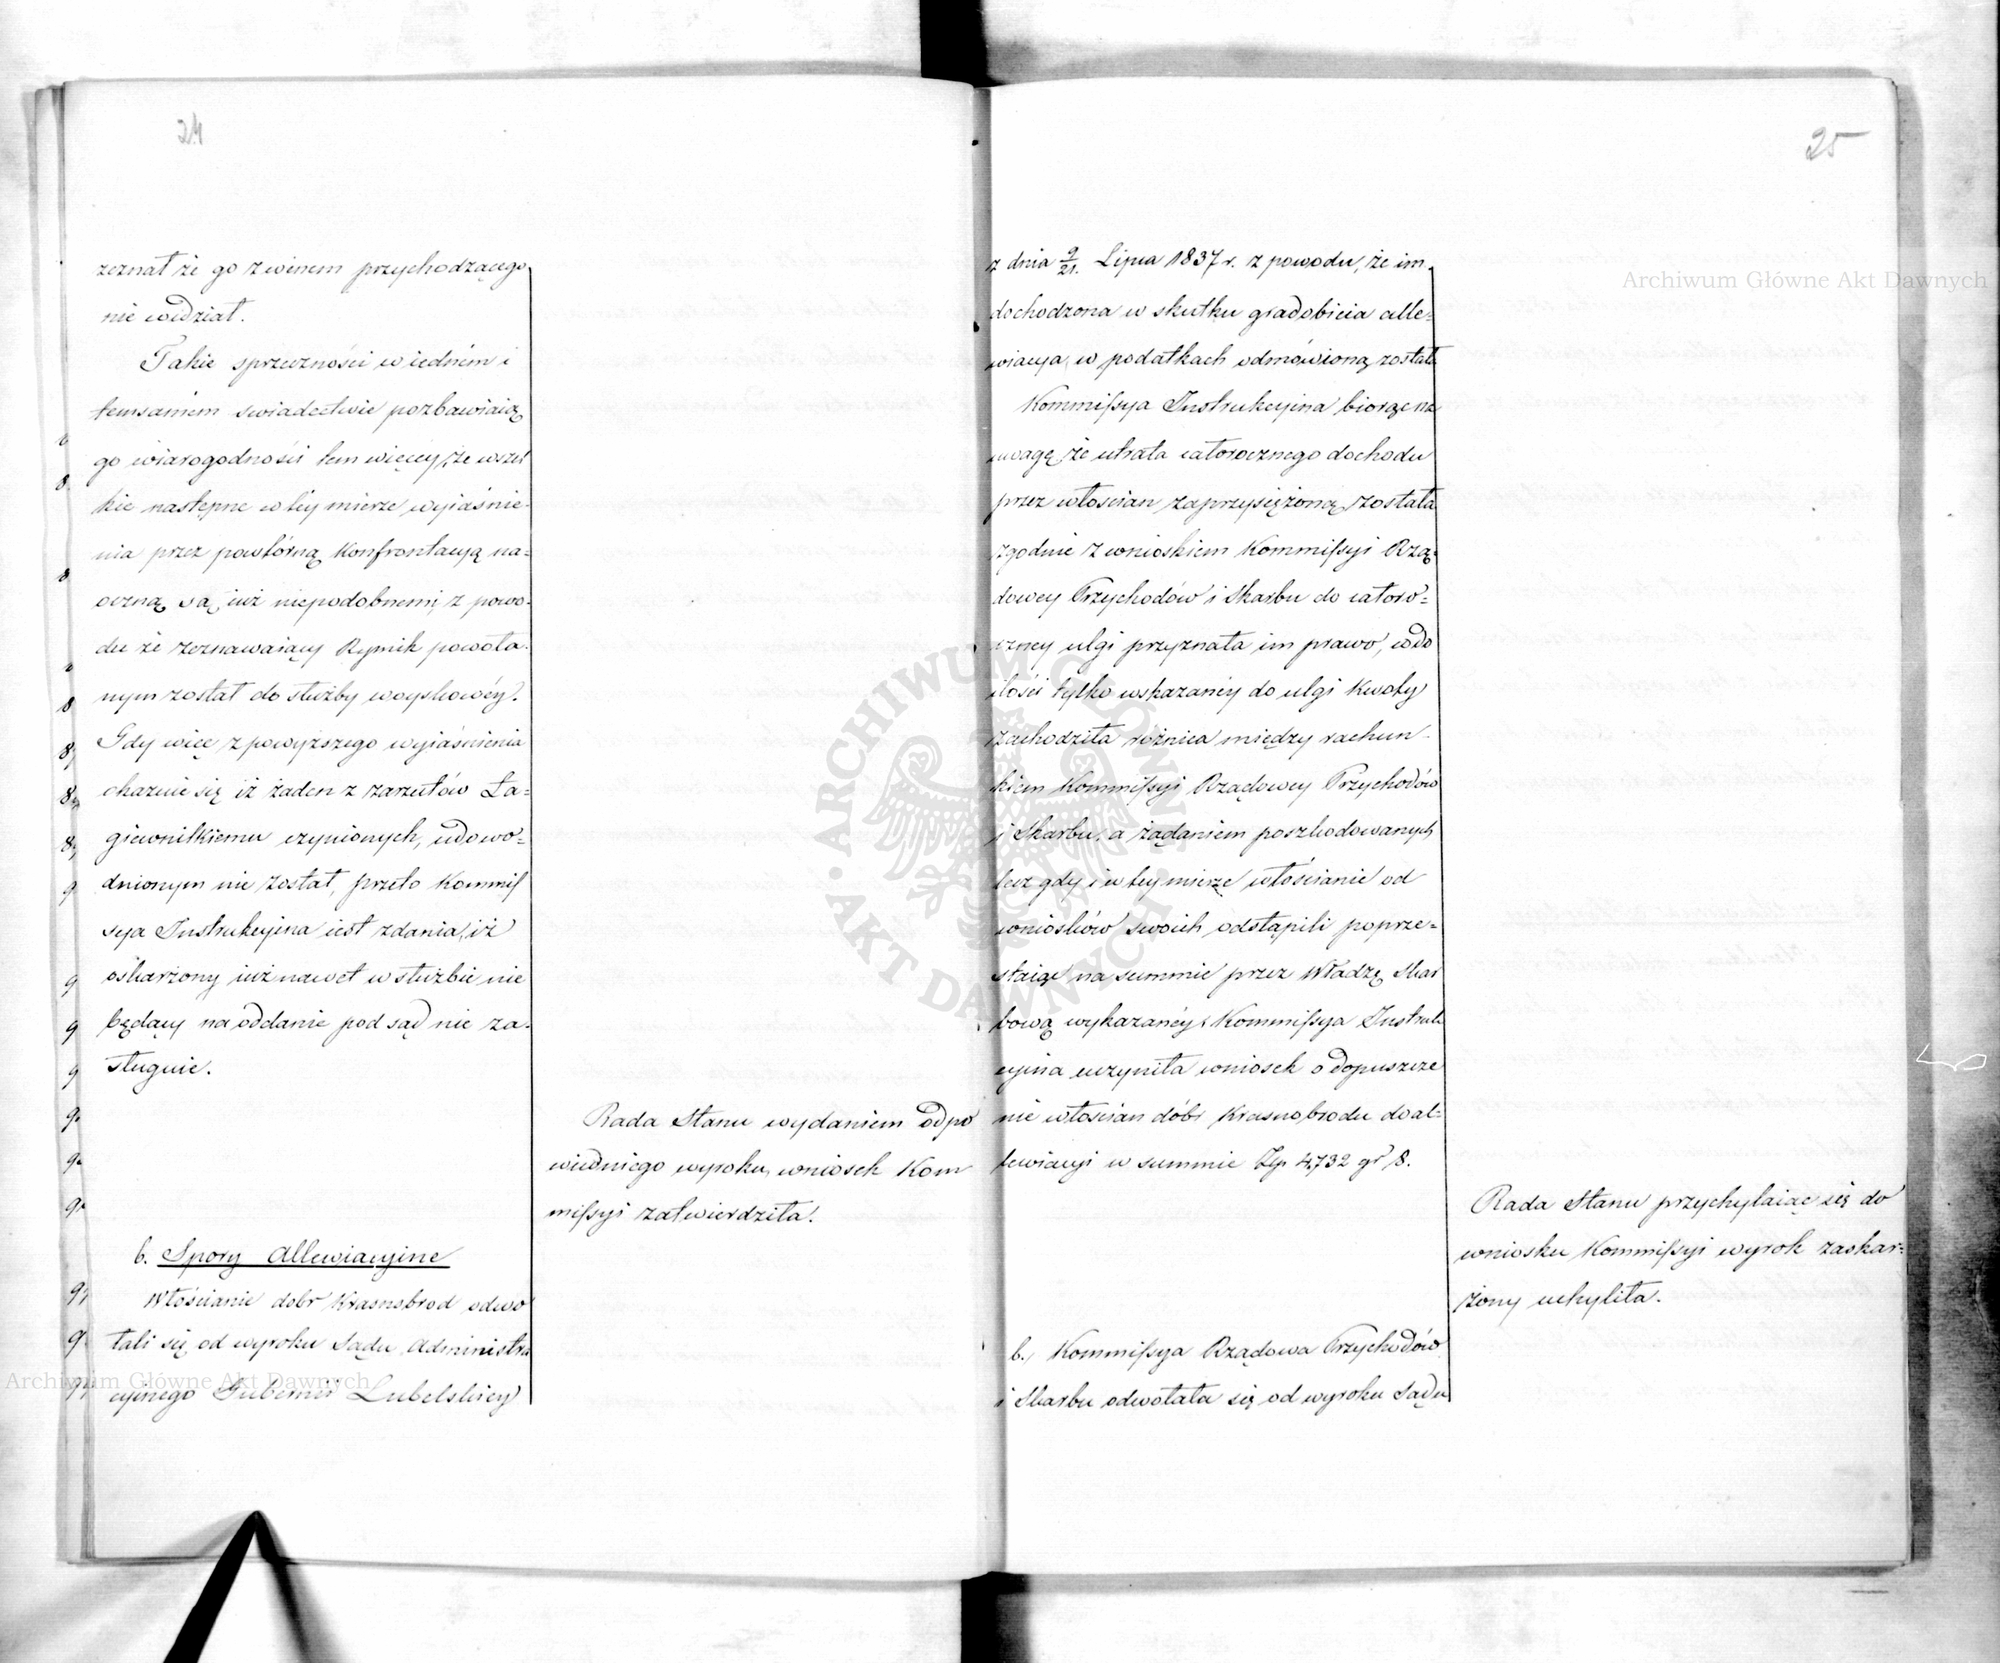 24
zeznał że go z winem przychodzącego
nie widział.
Takie sprzeczności w iedném i
temsamém swiadectwie pozbawiaią
go wiarogodności tem więcéy, że wszel
kie następne w téy mierze wyiaśnie-
nia przez powtórną Konfrontacyą na=
oczną są iuż niepodobnemi, z powo-
du że zeznawaiący Rymik powoła-
nym został do służby woyskowéy.
Gdy więc z powyższego wyiaśnienia
okazuie się iż żaden z zarzutów Ła=
giewnilkiemu czynionych, udowo=
dnionym nie został, przeto Kommis
sya Instrukcyina iest zdania, iż
oskarżony iuż nawet w służbie nie
będący na oddanie pod sąd nie za-
sługuie.
Rada Stanu wydaniem odpo
wiedniego wyroku, wniosek Kom
missyi zatwierdziła.
b. Spory Allewiacyine
Włościanie dobr Krasnobrod odwo
łali się od wyroku Sądu Administra
cyinego Gubernii Lubelskiey
25
z dnia 9/21. Lipca 1837 r. z powodu, że im
dochodzona w skutku gradobicia alle=
wiacya w podatkach odmówioną została
Kommissya Instrukcyina biorąc na
uwagę, że utrata całorocznego dochodu
przez włościan zaprzysiężoną została
zgodnie z wnioskiem Kommissyi Rzą=
dowey Przychodów i Skarbu do całoro=
czney ulgi przyznała im prawo, w do
ilości tylko wskazanéy do ulgi Kwoty
zachodziła różnica między rachun-
kiem Kommissyi Rządowey Przychodów
i Skarbu, a żądaniem poszkodowanych
lecz gdy i w tey mierze włościanie od
wniosków swoich odstąpili poprze=
staiąc na summie przez Władzę Skar
bową wykazanéy; Kommissya Instruk
cyina uczyniła wniosek o dopuszcze
nie włościan dóbr Krasnobrodu do al=
lewiacyi w summie Złp 4,732 gr 8.
Rada Stanu przychylaiąc się do
wniosku Kommissyi wyrok zaskar=
żony uchyliła.
b., Kommissya Rządowa Przychodów
i Skarbu odwołała się od wyroku Sądu
Archiwum Główne Akt Dawnych
Archiwum Główne Akt Dawnych
ARCHIWUM GŁÓWNE
AKT DAWNYCH